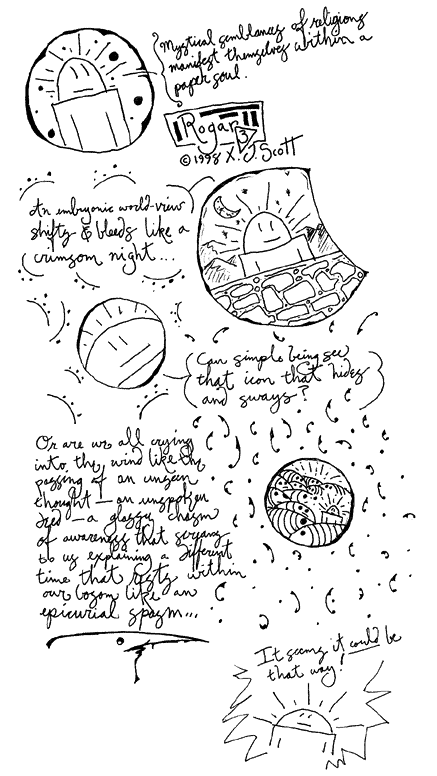 Mystical semblances of religions
manifest themselves within a
paper soul.
Rogar
3
© 1998 X. J. Scott
An embryonic world-view
shifts & bleeds like a
crimson night...
Can simple being see
that icon that hides
and sways?
Or are we all crying
into the wind like the
passing of an unseen
thought — an unspoken
deed — a glassy chasm
of awareness that screams
to us explaining a different
time that rests within
our bosom like an
epicurial spasm...
It seems it could be
that way!